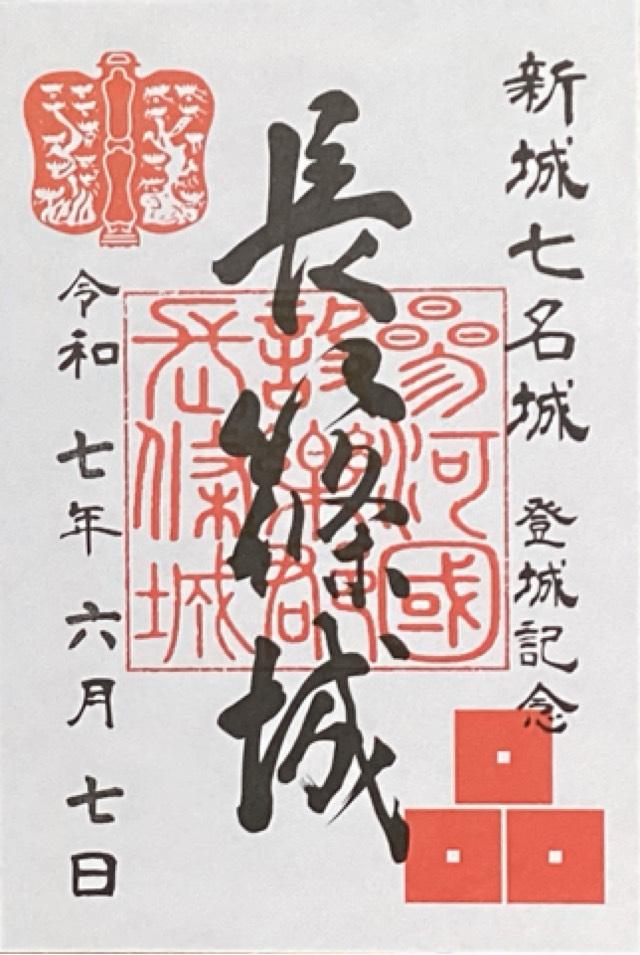 新城七名城 登城記念
長篠城
參河國
設樂郡
長篠城
令和 七年 六月 七日